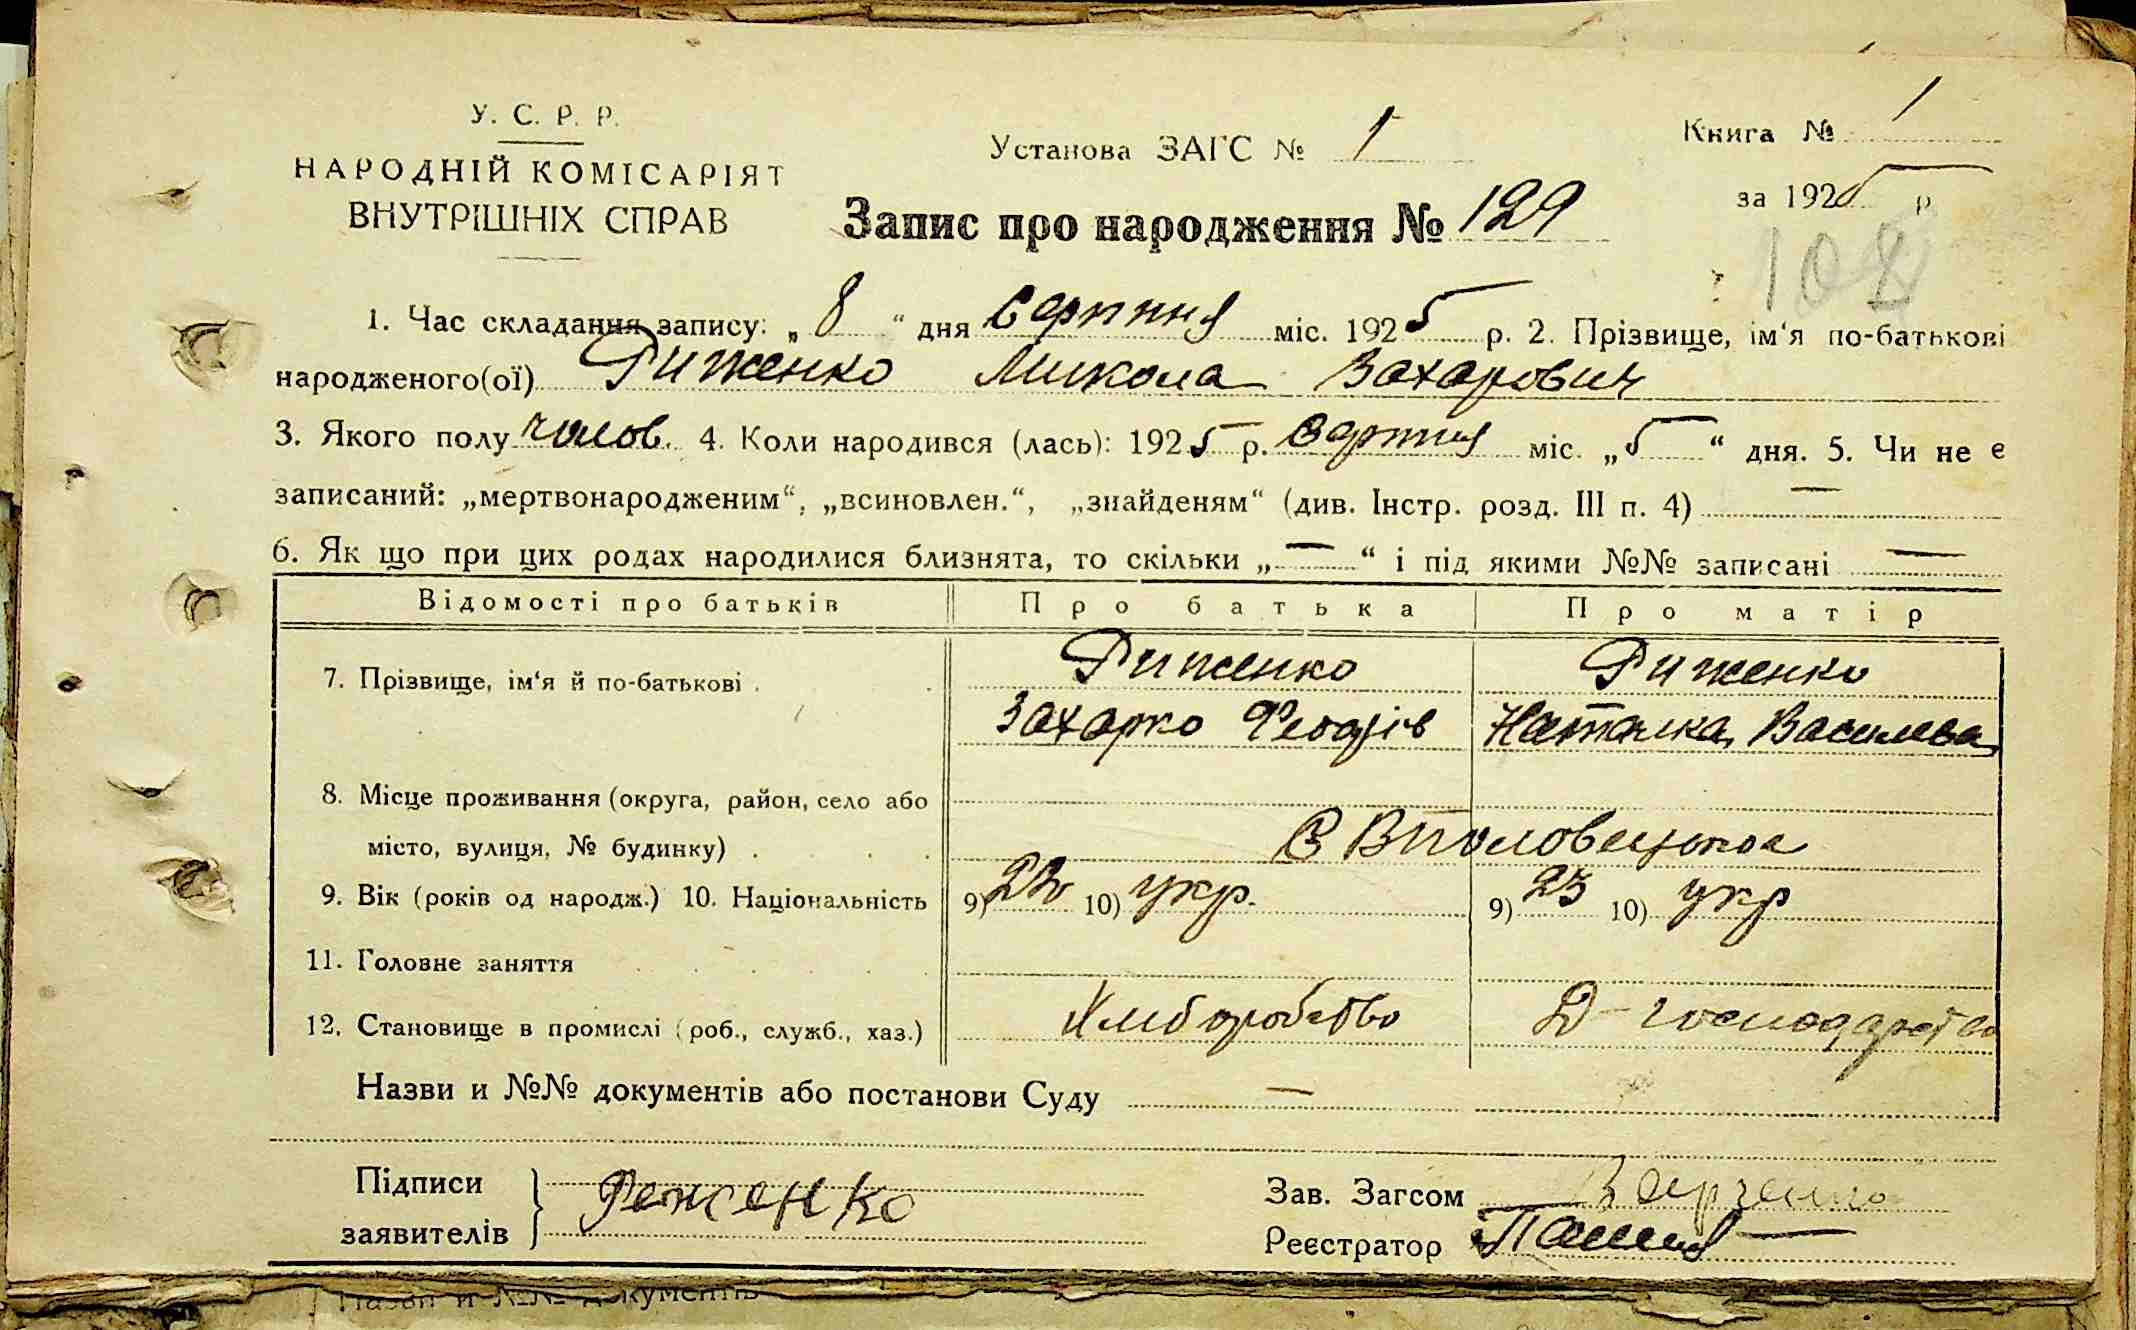 У. С. Р. Р.
НАРОДНІЙ КОМІСАРІЯТ
ВНУТРІШНІХ СПРАВ
Установа ЗАГС № 1
Книга № 1
за 1925 р
Запис про народження № 129
108
1. Час складання запису: „ 8 “ дня Серпння міс. 1925 р. 2. Прізвище, ім‘я по-батькові
народженого(ої) Риженко Микола Захарович
3. Якого полу чолов. 4. Коли народився (лась): 1925 р. Серпня міс. „ 5 “ дня. 5. Чи не є
записаний: „мертвонародженим“, „всиновлен.“, „знайденям“ (див. Інстр. розд. III п. 4) —
6. Як що при цих родах народилися близнята, то скільки „ — “ і під якими №№ записані —
Відомості про батьків Про батька Про матір
7. Прізвище, ім‘я й по-батькові . Риженко Риженко
Захарко Федорів Наталка Василева
8. Місце проживання (округа, район, село або
місто, вулиця, № будинку) . . . С Вполовецькое
9. Вік (років од народж.) 10. Національність 9) 22 10) укр. 9) 23 10) укр
11. Головне заняття
12. Становище в промислі (роб., служб., хаз.) Хліборобство Д-господарство
Назви и №№ документів або постанови Суду —
Підписи
заявителів Реженко
Зав. Загсом
Реєстратор
Назви и №№ документів